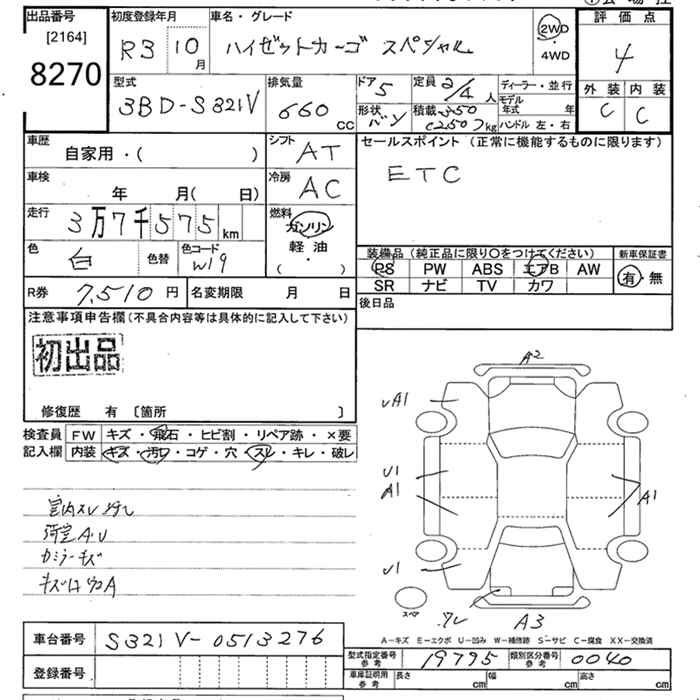 出品番号
[2164]
8270
初度登録年月
R3 10月
車名・グレード
ハイゼットカーゴ スペシャル
2WD
・
4WD
評価点
4
外装 内装
C C
型式
3BD-S321V
排気量
660 CC
ドア
5
形状
バン
定員 2/4 人
積載 350
(250) kg
ディーラー・並行
モデル年式 年
ハンドル 左・右
車歴
自家用・( )
シフト
AT
セールスポイント(正常に機能するものに限ります)
ETC
車検
年 月( 日)
冷房
AC
走行
3万7千575km
燃料
ガソリン
軽油
・
( )
色
白
色替
色コード
W19
装備品(純正品に限り〇をつけてください)
PS PW ABS エアB AW
SR ナビ TV カワ
新車保証書
有・無
R券 7,510円
名変期限 月 日
後日品
注意事項申告欄(不具合内容等は具体的に記入して下さい)
初出品
修復歴 有 〔箇所 〕
検査員
記入欄
FW キズ・飛石・ヒビ割・リペア跡・×要
内装 キズ・汚レ・コゲ・穴・スレ・キレ・破レ
室内スレ汚レ
荷室A・U
カミラーキズ
A2
A1
U1
A1
A1
U1
スペア
A3
A−キズ E−エクボ U−凹み W−補修跡 S−サビ C−腐食 XX−交換済
車台番号 S321V-0513276
登録番号
型式指定番号
参考
19795
類別区分番号
参考
0040
車庫証明用
参考
長さ cm
幅 cm
高さ cm